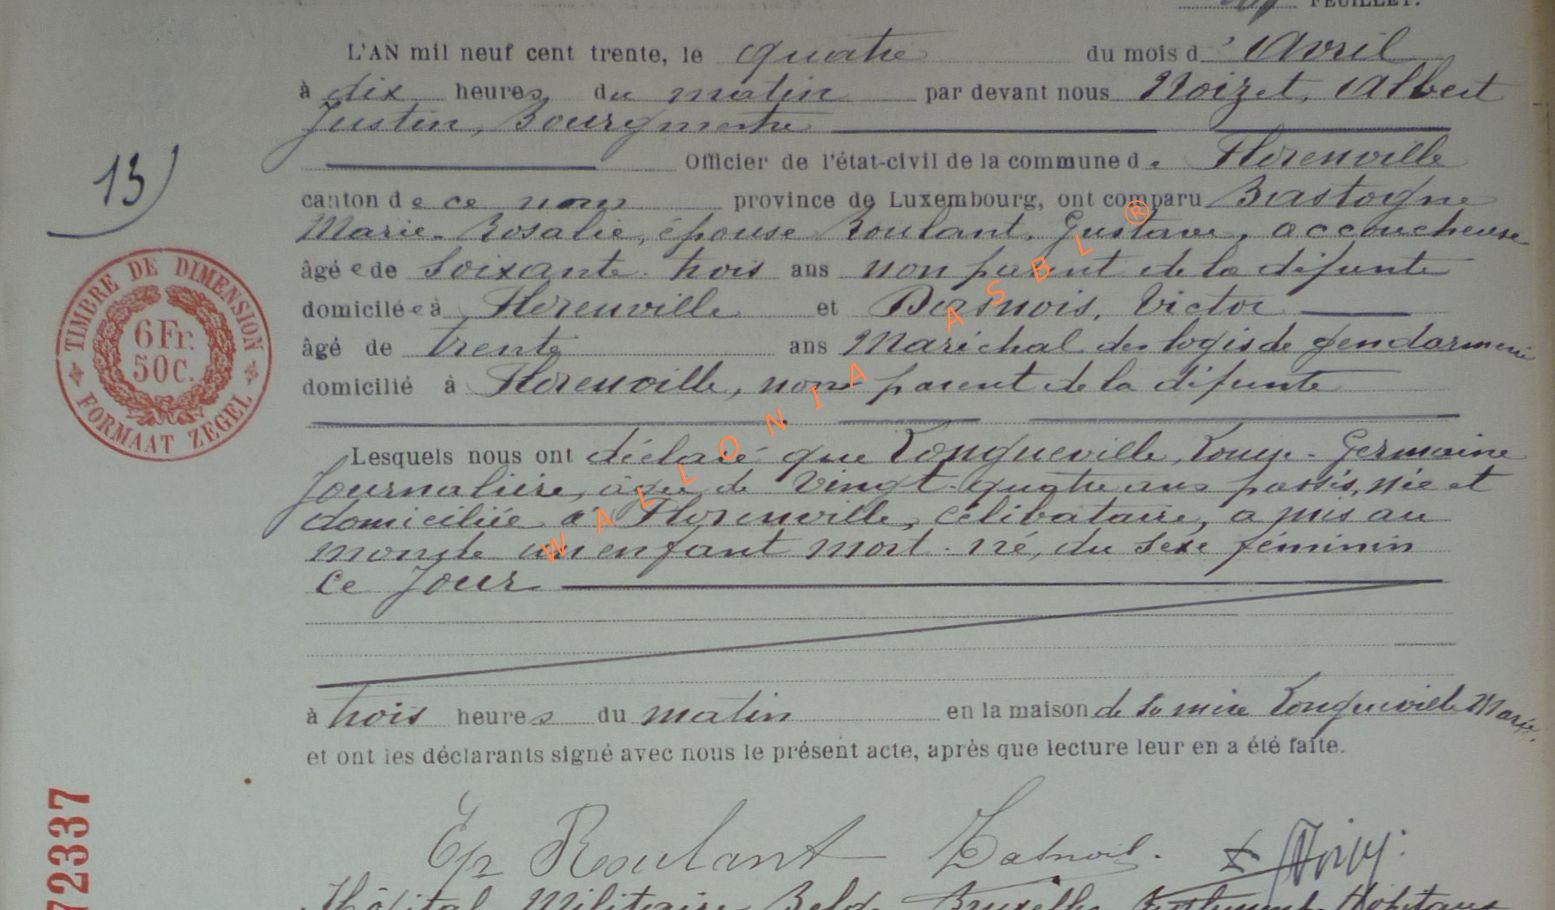 FEUILLET.
L'AN mil neuf cent trente, le quatre du mois d'Avril
à dix heures du matin par devant nous Noizet, Albert
Justin, Bourgmestre
13) Officier de l'état-civil de la commune de Florenville
canton de ce nom province de Luxembourg, ont comparu Bastogne
Marie-Rosalie, épouse Roulant, Gustave, accoucheuse
âgée de soixante-trois ans non parent de la défunte
domiciliée à Florenville et Victor
âgé de trente ans Maréchal des logis de gendarmerie
domicilié à Florenville, non parent de la défunte
Lesquels nous ont déclaré que Longueville, Louise-Germaine
Journalière, âgée de vingt-quatre ans passés, née et
domiciliée à Florenville, célibataire, a mis au
monde un enfant mort-né, du sexe féminin
ce jour
à trois heures du matin en la maison de sa mère Longueville Marie.
et ont les déclarants signé avec nous le présent acte, après que lecture leur en a été faite.
Ep Roulant
Hôpital Militaire Belge Bruxelles
TIMBRE DE DIMENSION
6Fr.
50c.
FORMAAT ZEGEL
72337
WALLONIA ASBL ®